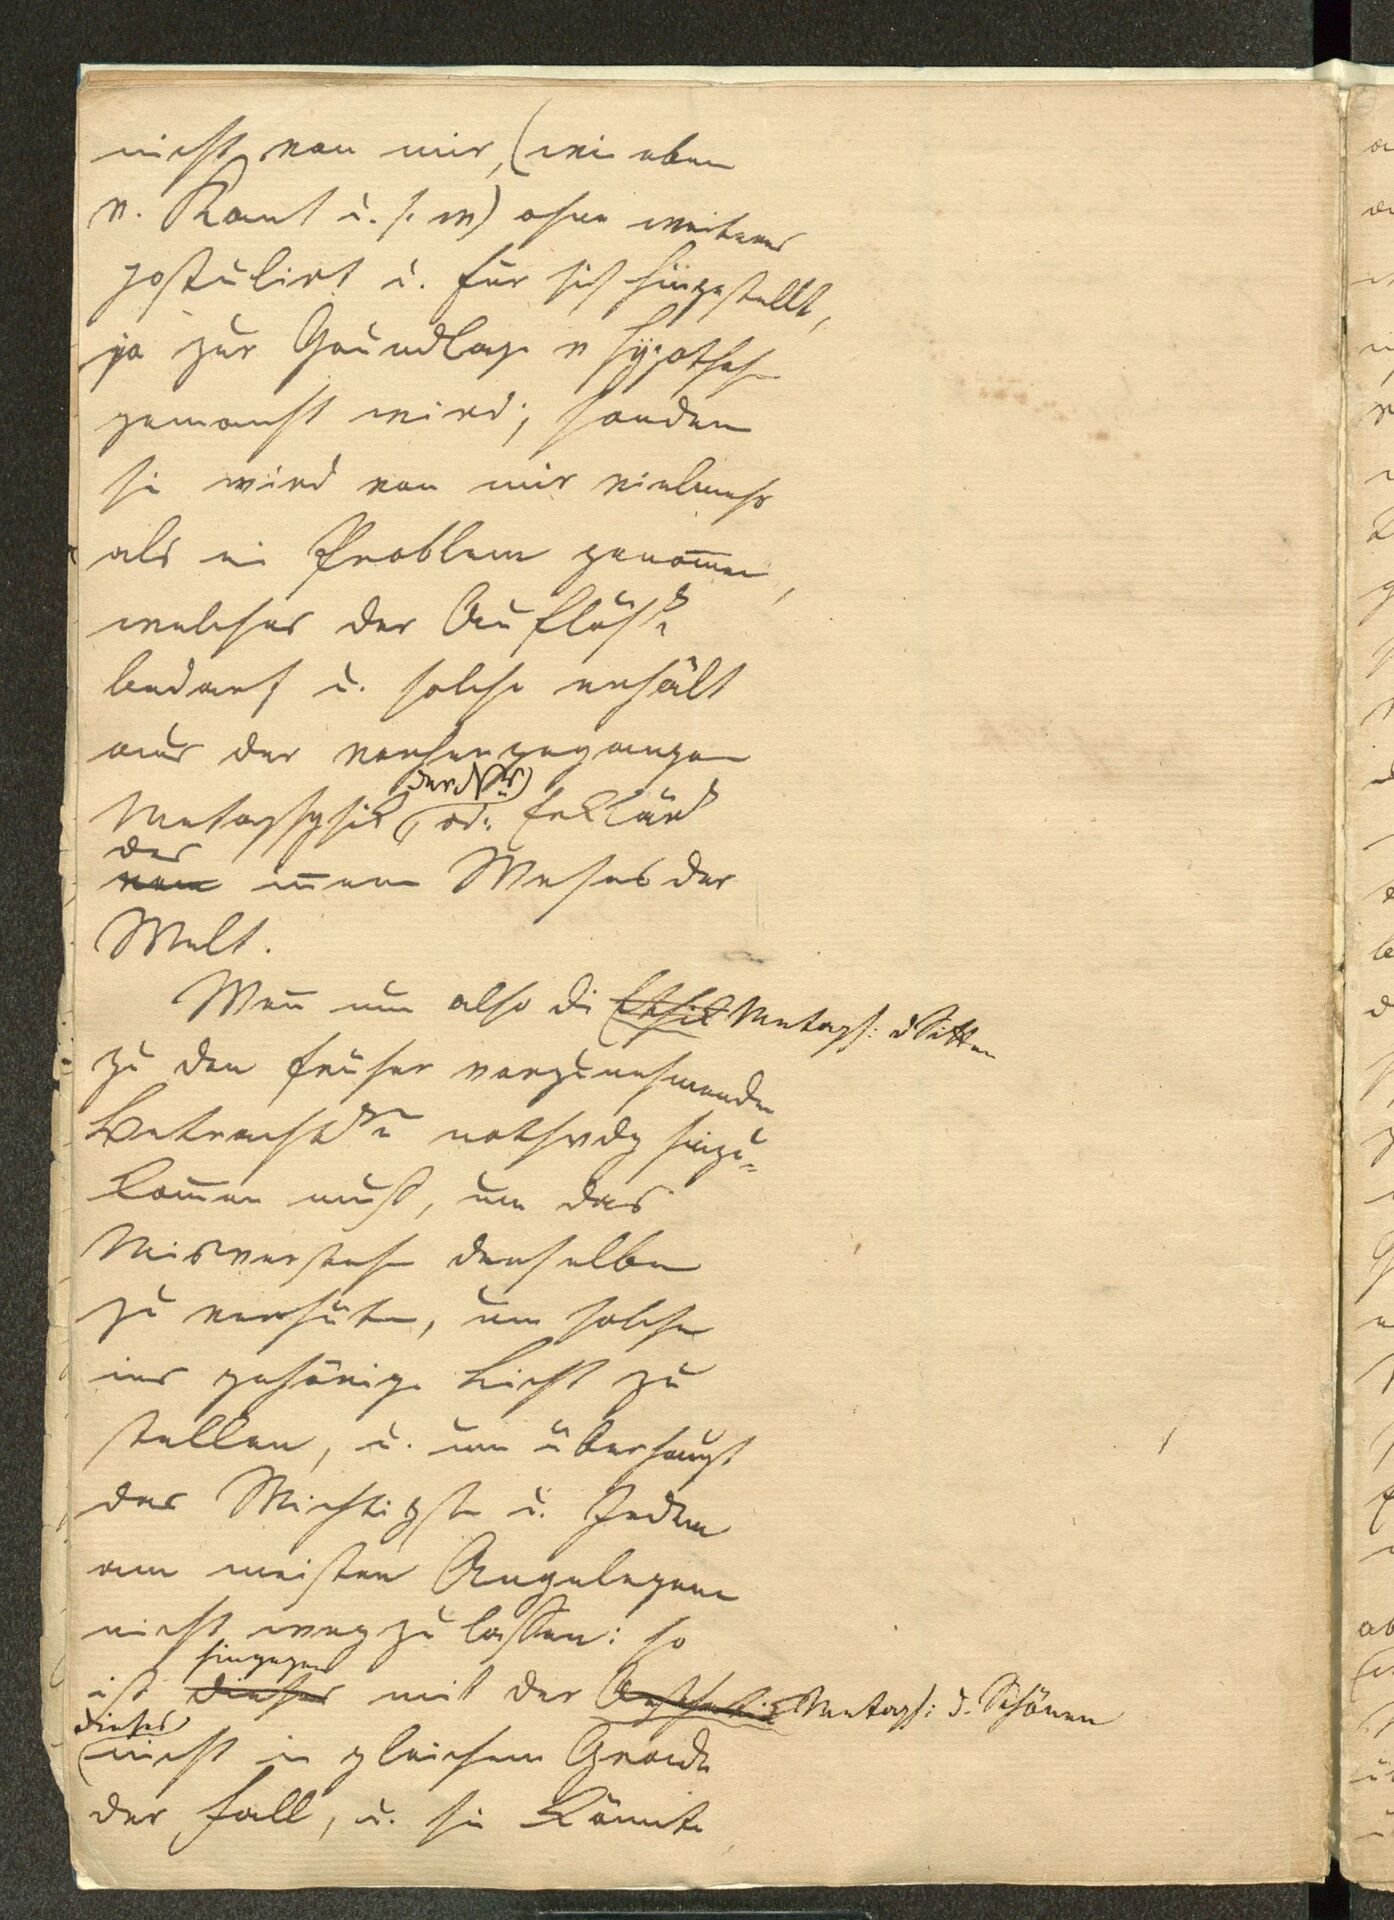 nicht von mir, (wie eben
v. Kant u. s. w) ohne weiteres
postulirt u. für sich hingestellt,
ja zur Grundlage v Hypothesen
gemacht wird; sondern
sie wird von mir vielmehr
als ein Problem genommen,
welches der Auflösg
bedarf u. solche erhält
aus der vorhergegangen
der Nr
Metaphysik, od: Erklärg
des
vom innern Wesens der
Welt.
Wenn nun also die Ethik Metaph: d Sitten
zu den früher vorzunehmenden
Betrachtgn nothwdg hinzu-
kommen muß, um das
Misverstehn derselben
zu verhüten, um solche
ins gehörige Licht zu
stellen, u. um überhaupt
das Wichtigste u. Jedem
am meisten Angelegene
nicht wegzulassen: so
hingegen
ist dieses mit der Aesthetik Metaph: d. Schönen
dieses
nicht in gleichem Grade
der Fall, u. sie könnte